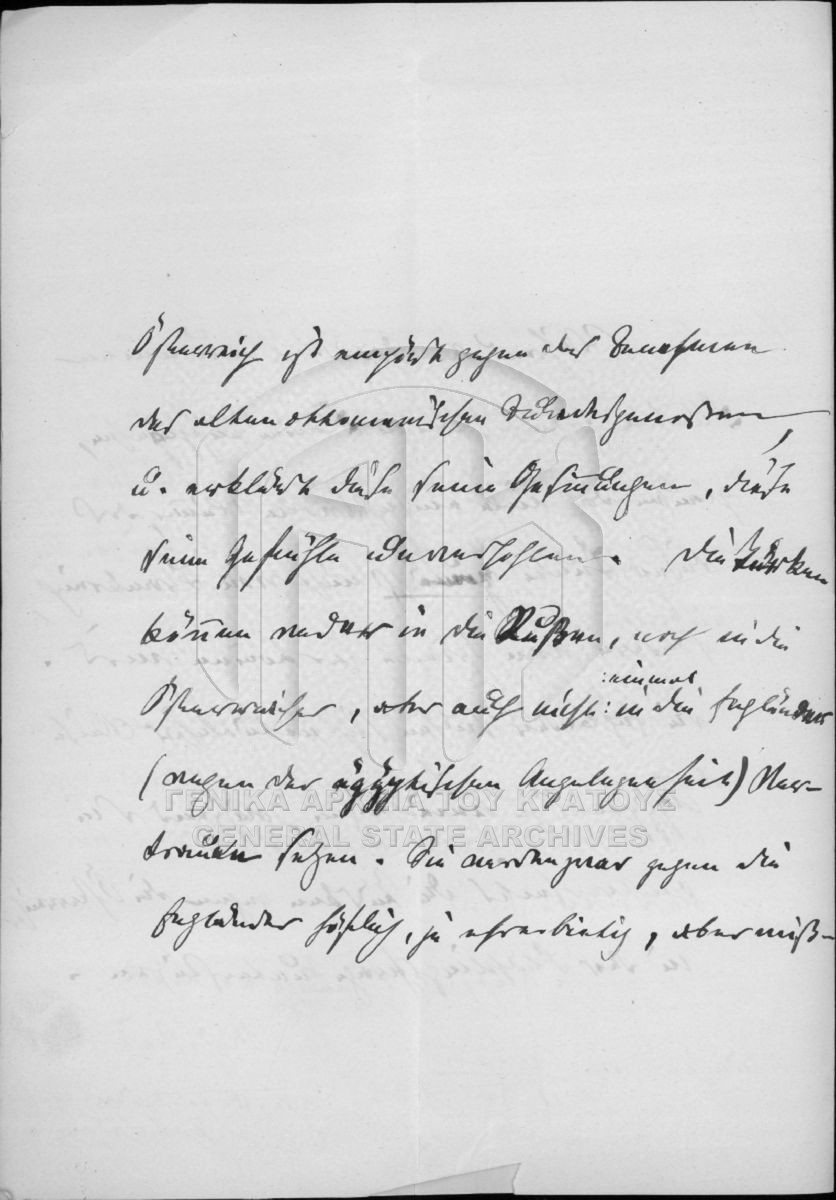 Österreich ist empört gegen das Benehmen
des alten ottomanischen Bundesgenossen,
u. erklärt diese seine Gesinnungen, diese
seine Gefühle unverhohlen. Die Türken
können weder in die Rußen, noch in die
Österreicher, aber auch nicht :einmal: in die Engländer
(wegen der ägyptischen Angelegenheit) Ver-
trauen setzen. Sie werden zwar gegen die
Engländer höflich, ja ehrerbietig, aber miß-
ΓΕΝΙΚΑ ΑΡΧΕΙΑ ΤΟΥ ΚΡΑΤΟΥΣ
GENERAL STATE ARCHIVES